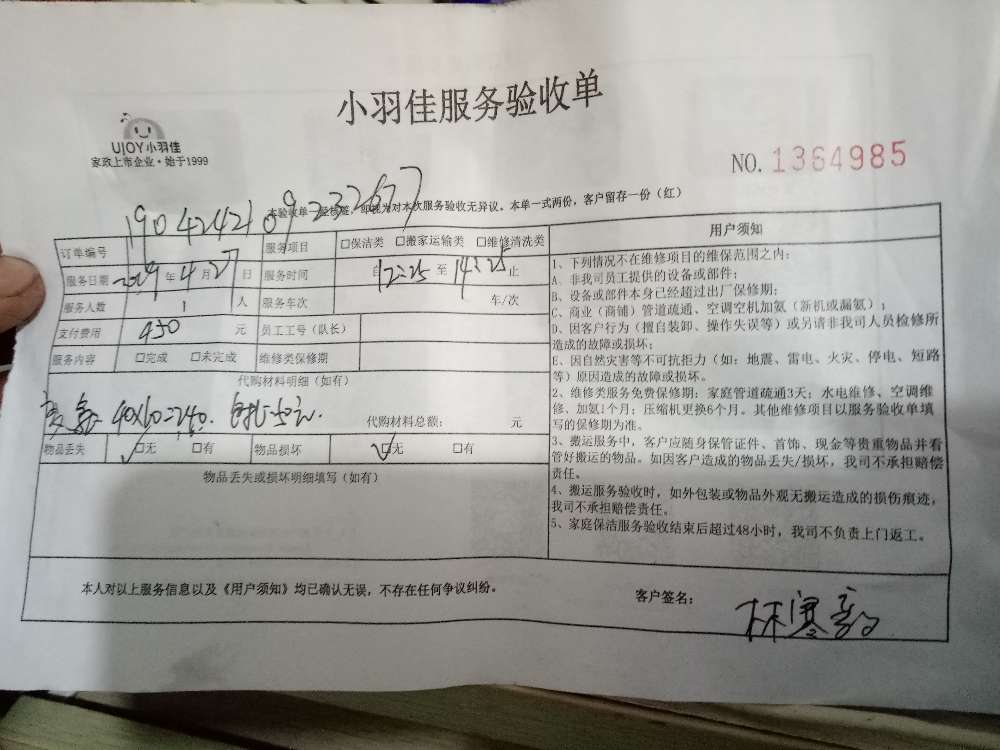 小羽佳服务验收单
UJOY小羽佳
家政上市企业·始于1999
NO.1364985
本验收单一经核签，即视为对本次服务验收无异议。本单一式两份，客户留存一份（红）
订单编号 190424210923267
服务项目 □保洁类 □搬家运输类 □维修清洗类
服务日期 2019年4月27日 服务时间 自12:25至14:25止
服务人数 1 人 服务车次 车/次
支付费用 430 元 员工工号（队长）
服务内容 □完成 □未完成 维修类保修期
代购材料明细（如有）
40X60=240. 代购材料总额： 元
物品丢失 ✓□无 □有 物品损坏 ✓□无 □有
物品丢失或损坏明细填写（如有）
用户须知
1、下列情况不在维修项目的维保范围之内：
A、非我司员工提供的设备或部件；
B、设备或部件本身已经超过出厂保修期；
C、商业（商铺）管道疏通、空调空机加氨（新机或漏氨）；
D、因客户行为（擅自装卸、操作失误等）或另请非我司人员检修所
造成的故障或损坏；
E、因自然灾害等不可抗拒力（如：地震、雷电、火灾、停电、短路
等）原因造成的故障或损坏。
2、维修类服务免费保修期：家庭管道疏通3天；水电维修、空调维
修、加氨1个月；压缩机更换6个月。其他维修项目以服务验收单填
写的保修期为准。
3、搬运服务中，客户应随身保管证件、首饰、现金等贵重物品并看
管好搬运的物品。如因客户造成的物品丢失/损坏，我司不承担赔偿
责任。
4、搬运服务验收时，如外包装或物品外观无搬运造成的损伤痕迹，
我司不承担赔偿责任。
5、家庭保洁服务验收结束后超过48小时，我司不负责上门返工。
本人对以上服务信息以及《用户须知》均已确认无误，不存在任何争议纠纷。
客户签名：